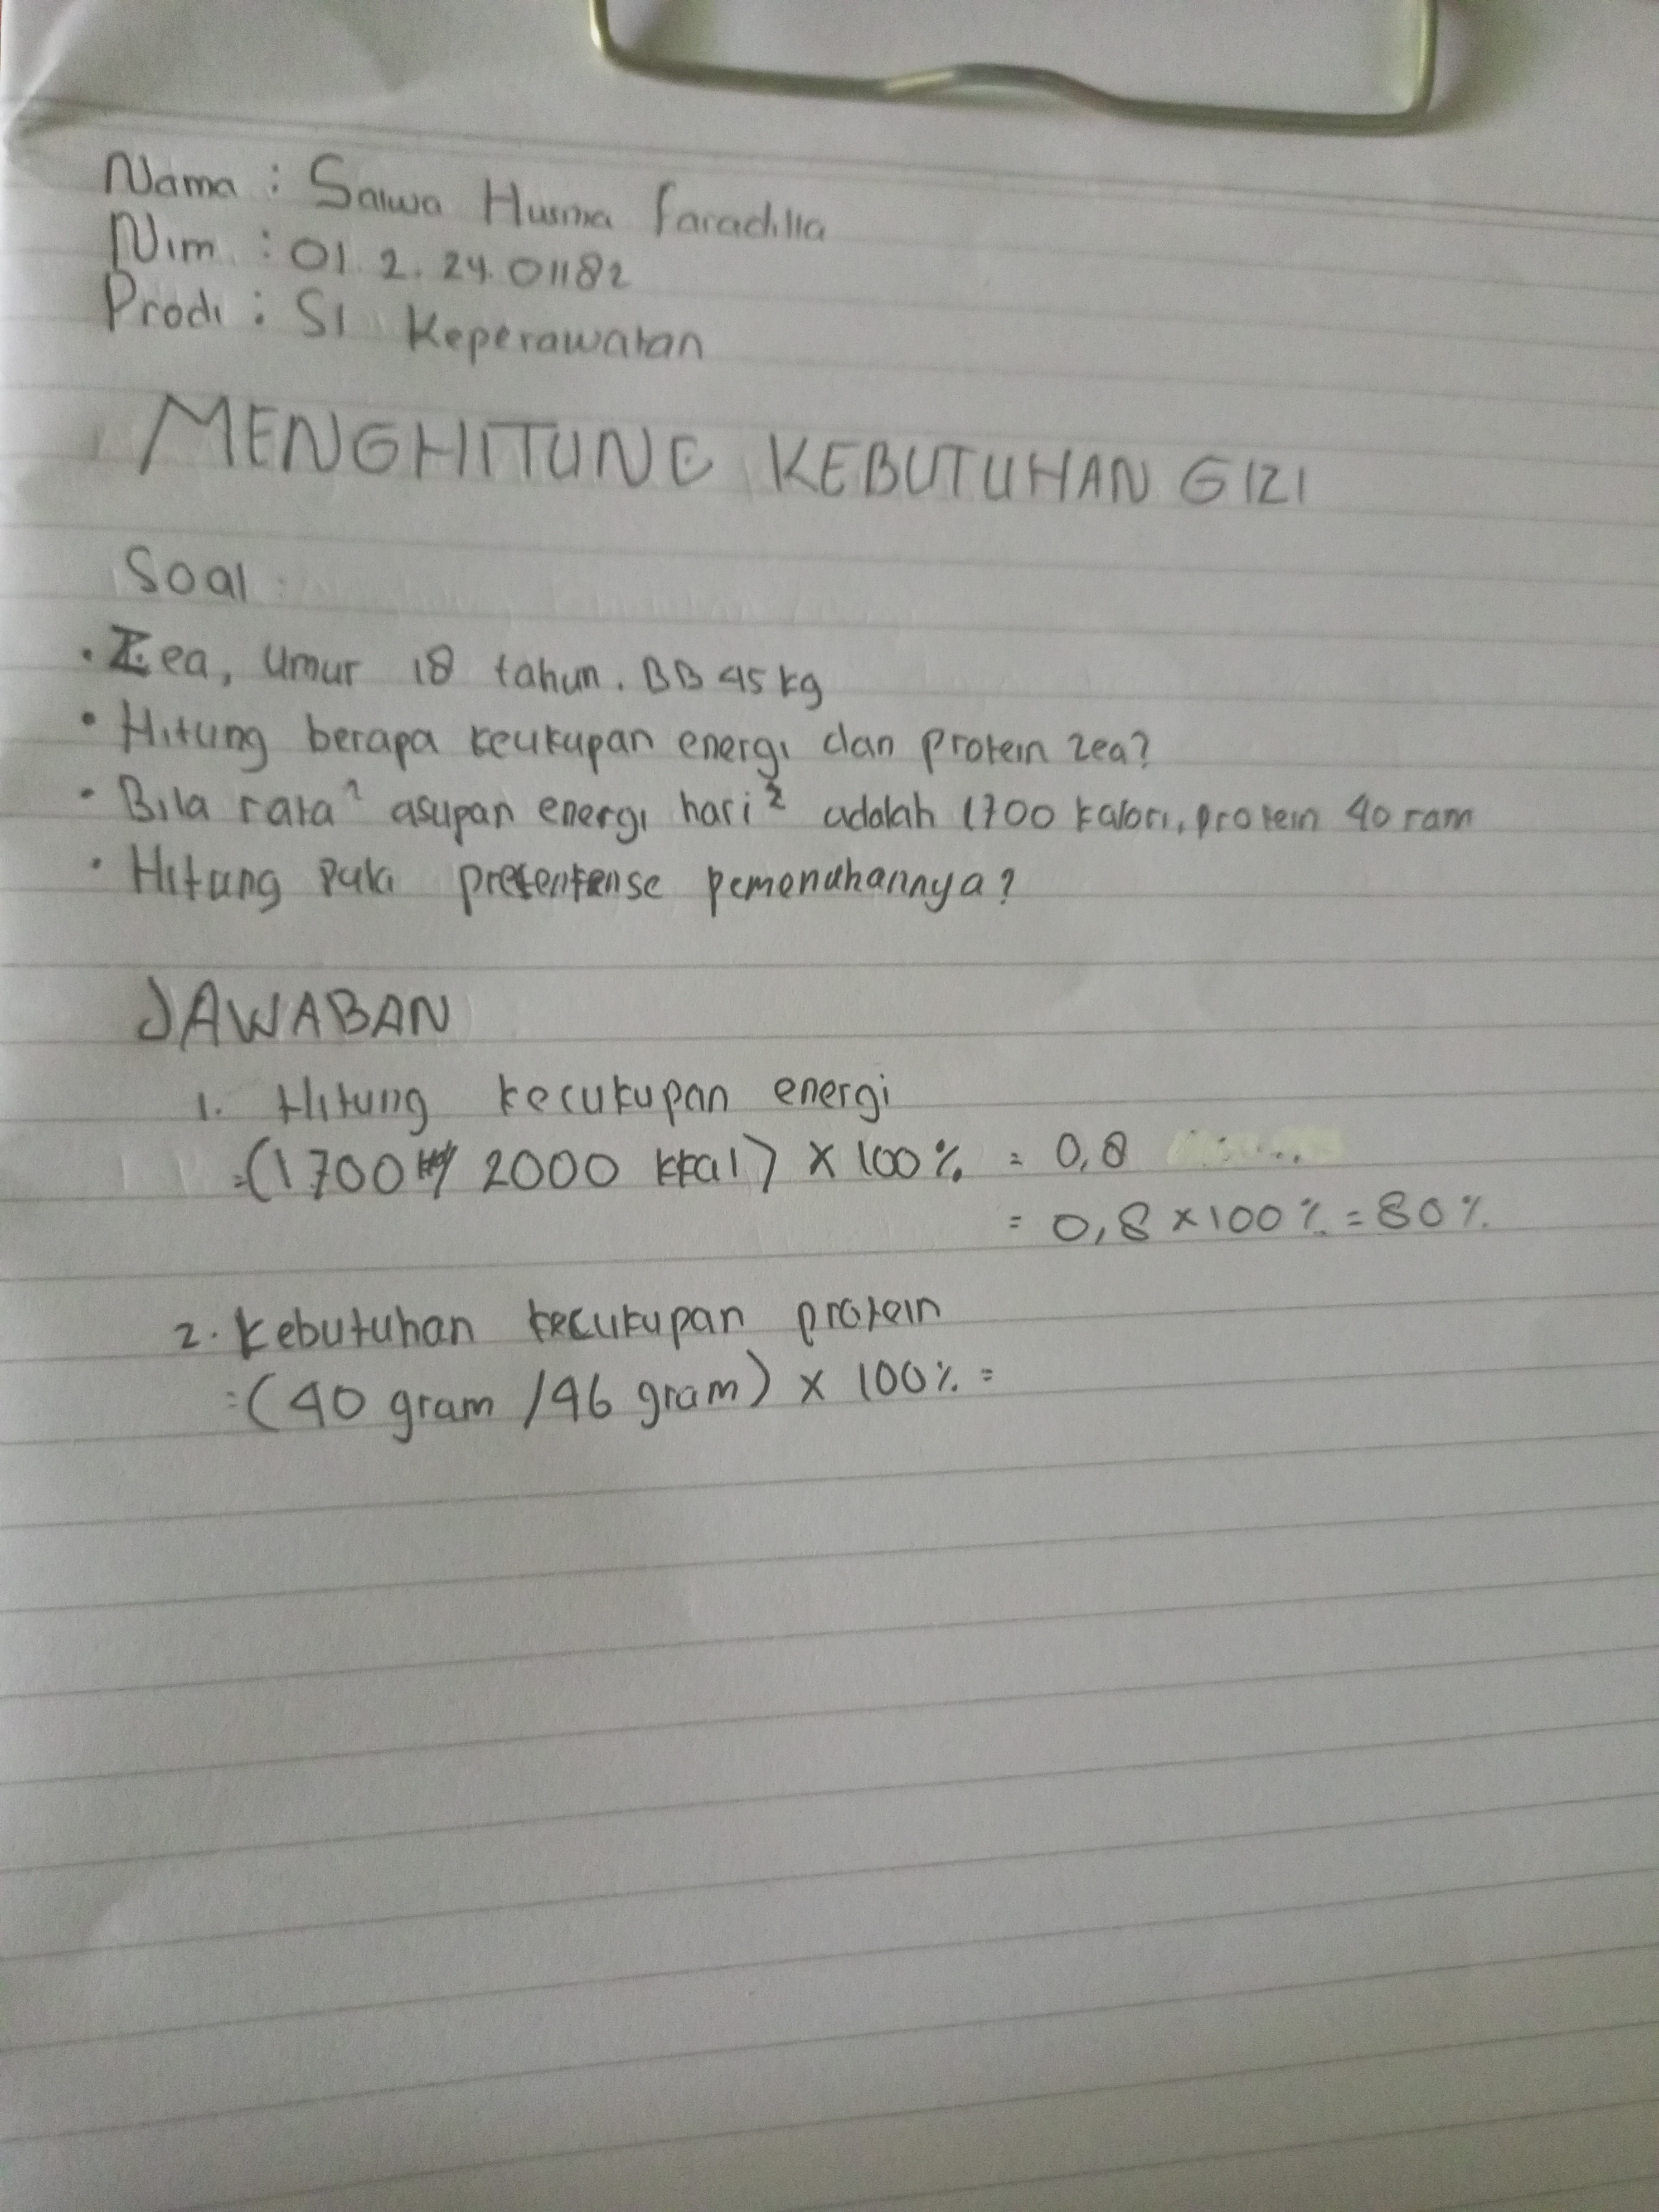 Nama : Salwa Husma Faradilla
Nim : 01.2.24.01182
Prodi : S1 Keperawatan
MENGHITUNG KEBUTUHAN GIZI
Soal :
• Zea, Umur 18 tahun. BB 45 kg
• Hitung berapa keukupan energi dan protein zea?
• Bila rata² asupan energi hari² adalah 1700 kalori, protein 40 ram
• Hitung pula presentense pemenuhannya?
JAWABAN
1. Hitung kecukupan energi
=(1700 / 2000 kkal) x 100% = 0,8
= 0,8 x 100% = 80%
2. Kebutuhan kecukupan protein
=(40 gram / 46 gram) x 100% =